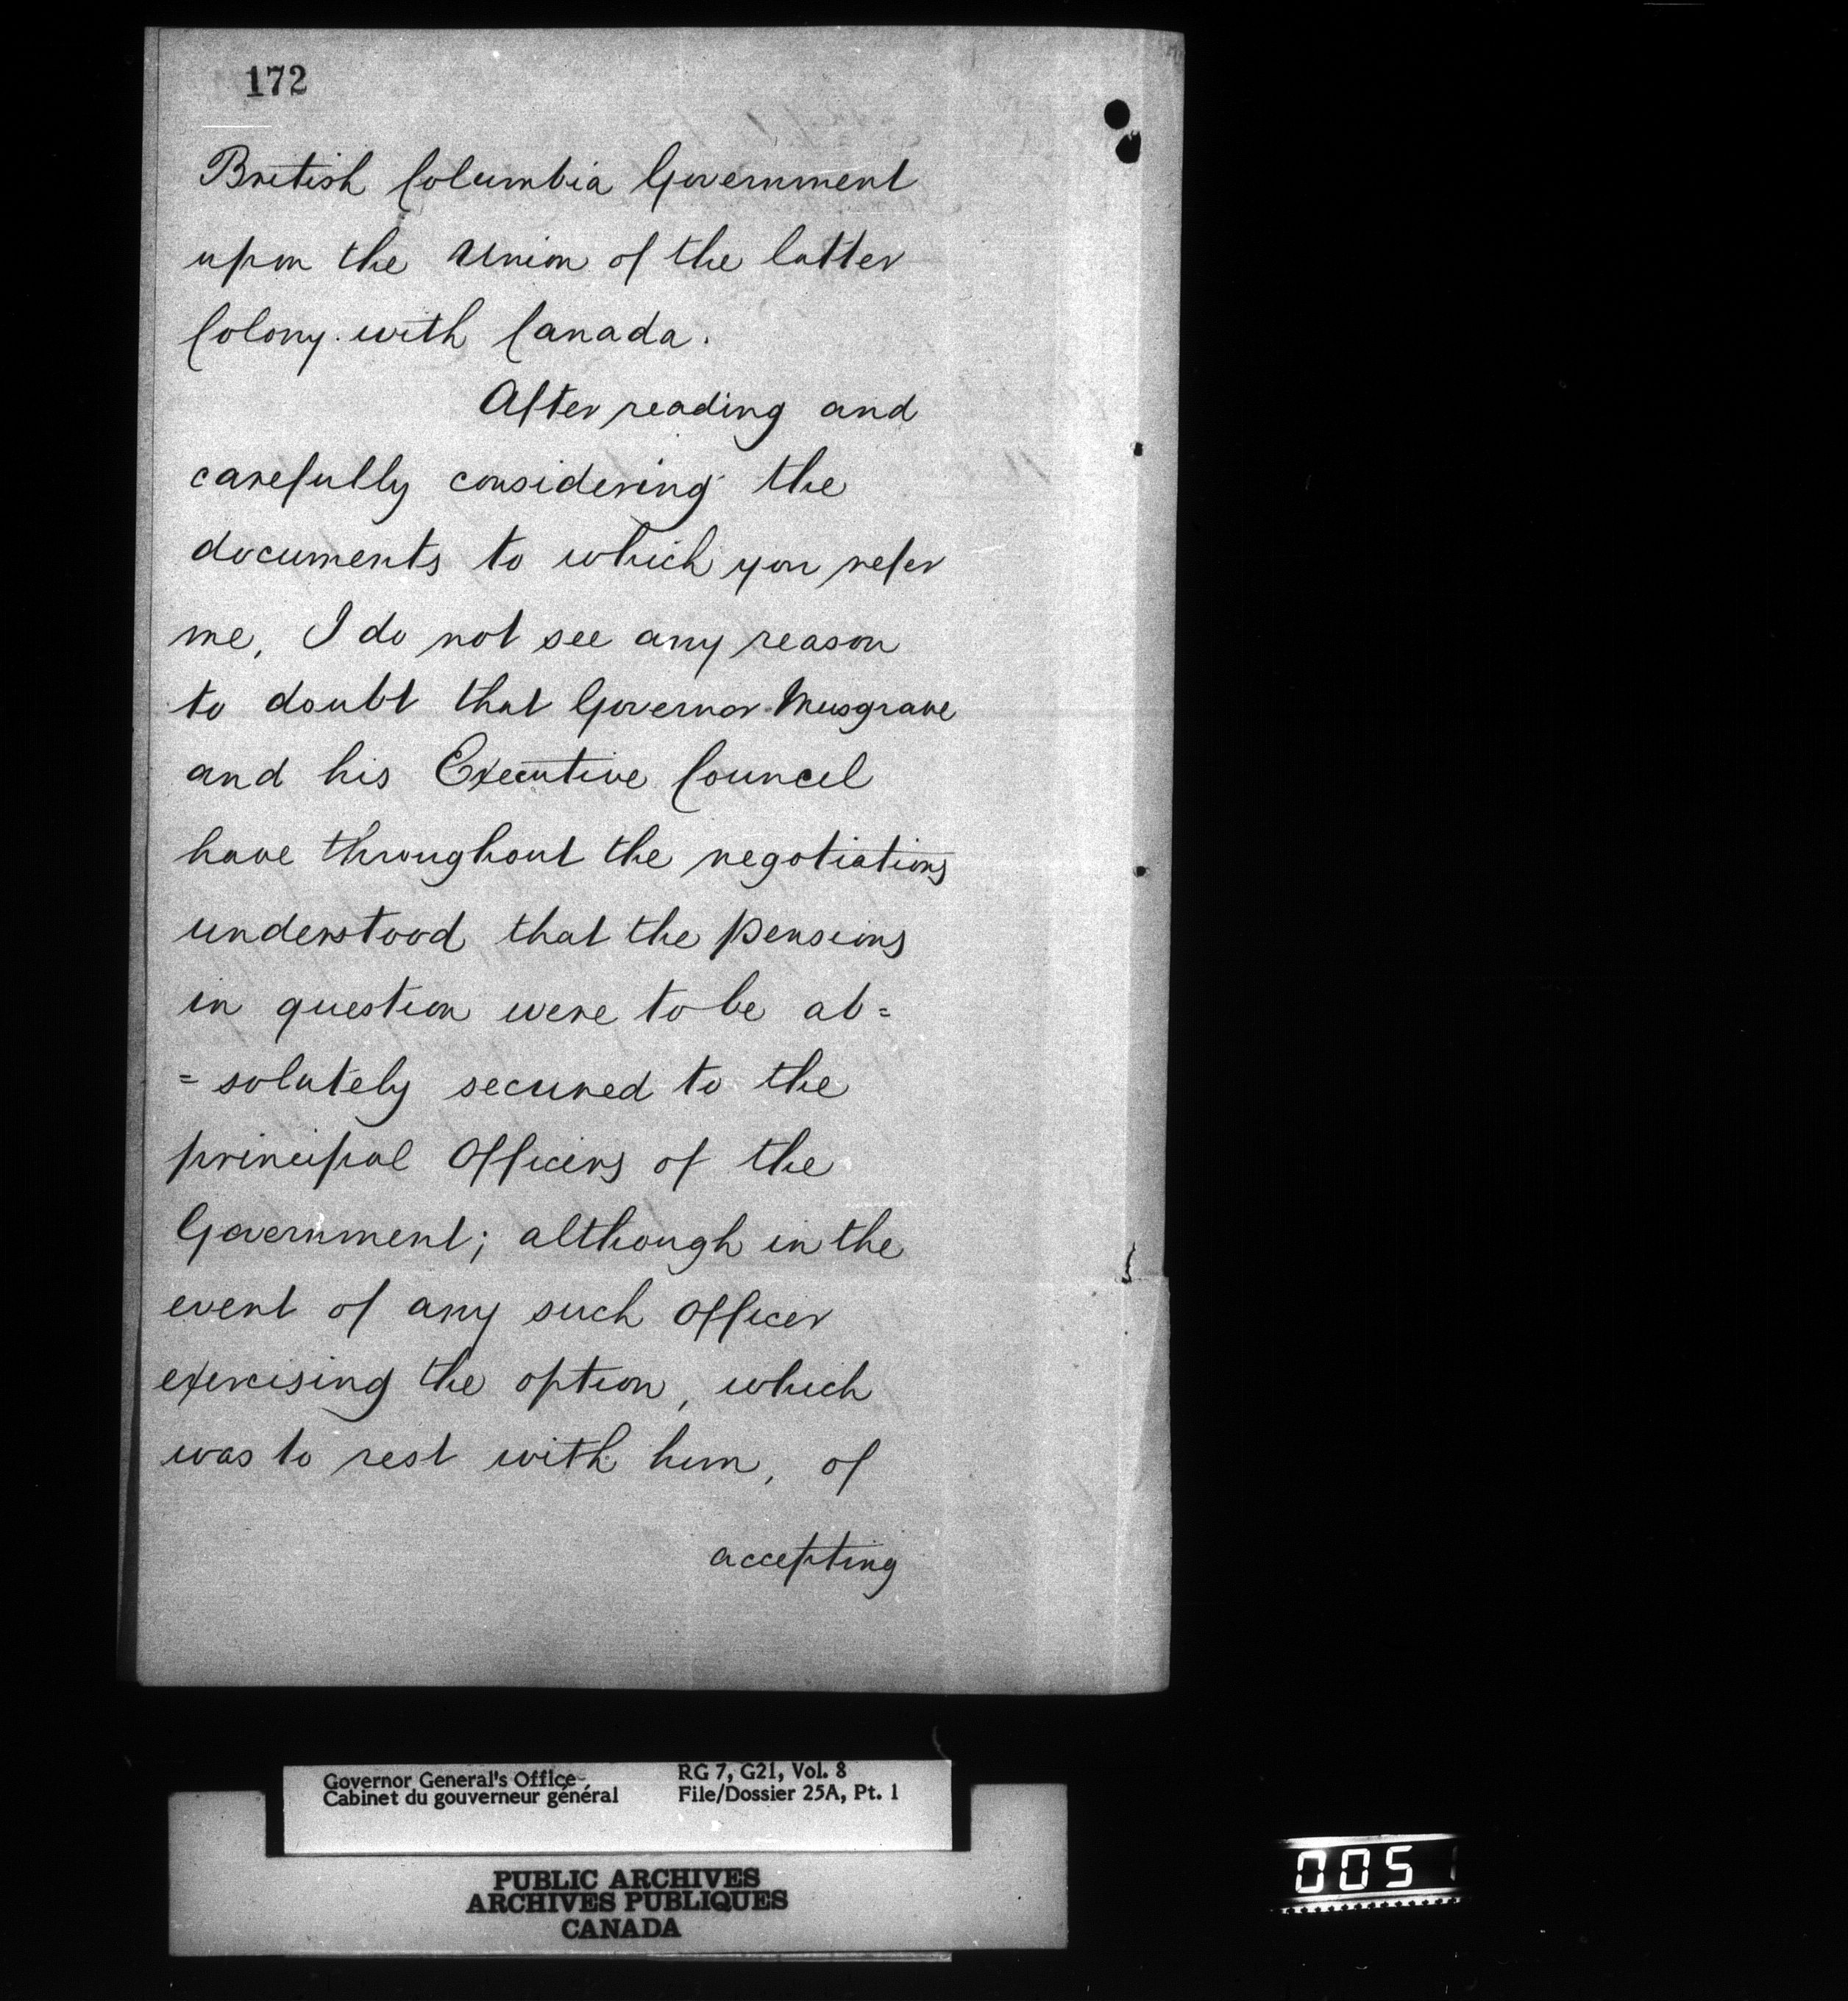 172
British Columbia Government
upon the Union of the latter
Colony with Canada.
After reading and
carefully considering the
documents to which you refer
me, I do not see any reason
to doubt that Governor Musgrave
and his Executive Council
have throughout the negotiations
understood that the pensions
in question were to be ab=
=solutely secured to the
principal Officers of the
Government; although in the
event of any such Officer
exercising the option, which
was to rest with him, of
accepting
Governor General's Office
Cabinet du gouverneur général
RG 7, G21, Vol. 8
File/Dossier 25A, Pt. 1
PUBLIC ARCHIVES
ARCHIVES PUBLIQUES
CANADA
005